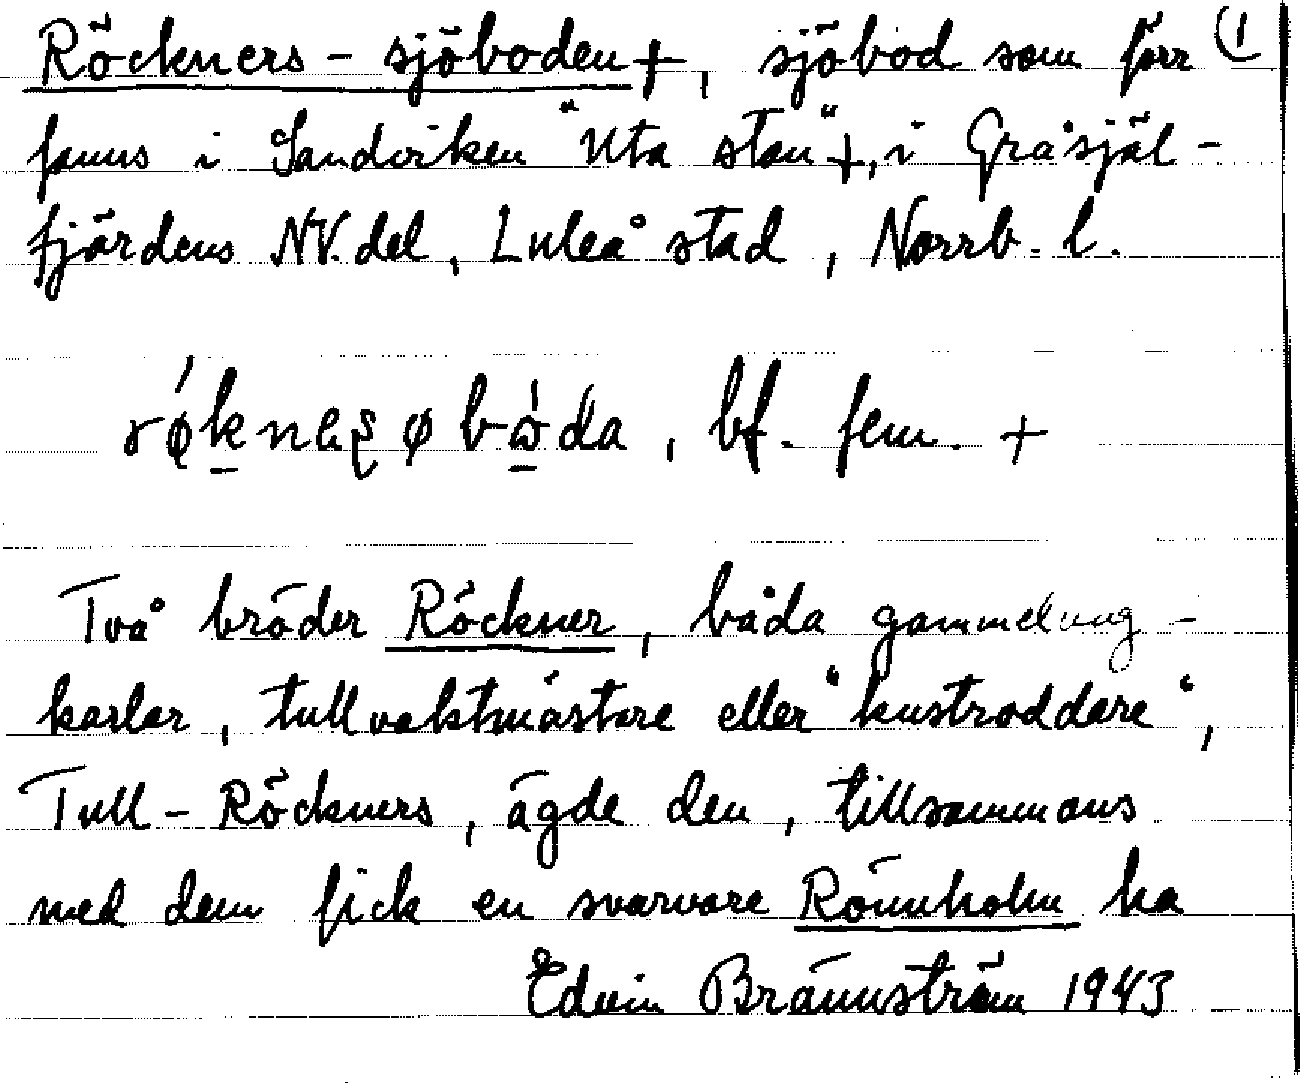 Röckners-sjöboden +, sjöbod som förr (1
fanns i Sandviken "Uta stan" +, i Gråsjäl-
fjärdens NV. del, Luleå stad, Norrb. l.
bf. fem. +
Två bröder Röckner, båda gammelung-
karlar, tullvaktmästare eller "kustroddare",
Tull-Röckners, ägde den, tillsammans
med dem fick en svarvare Rönnholm ha
Edvin Brännström 1943